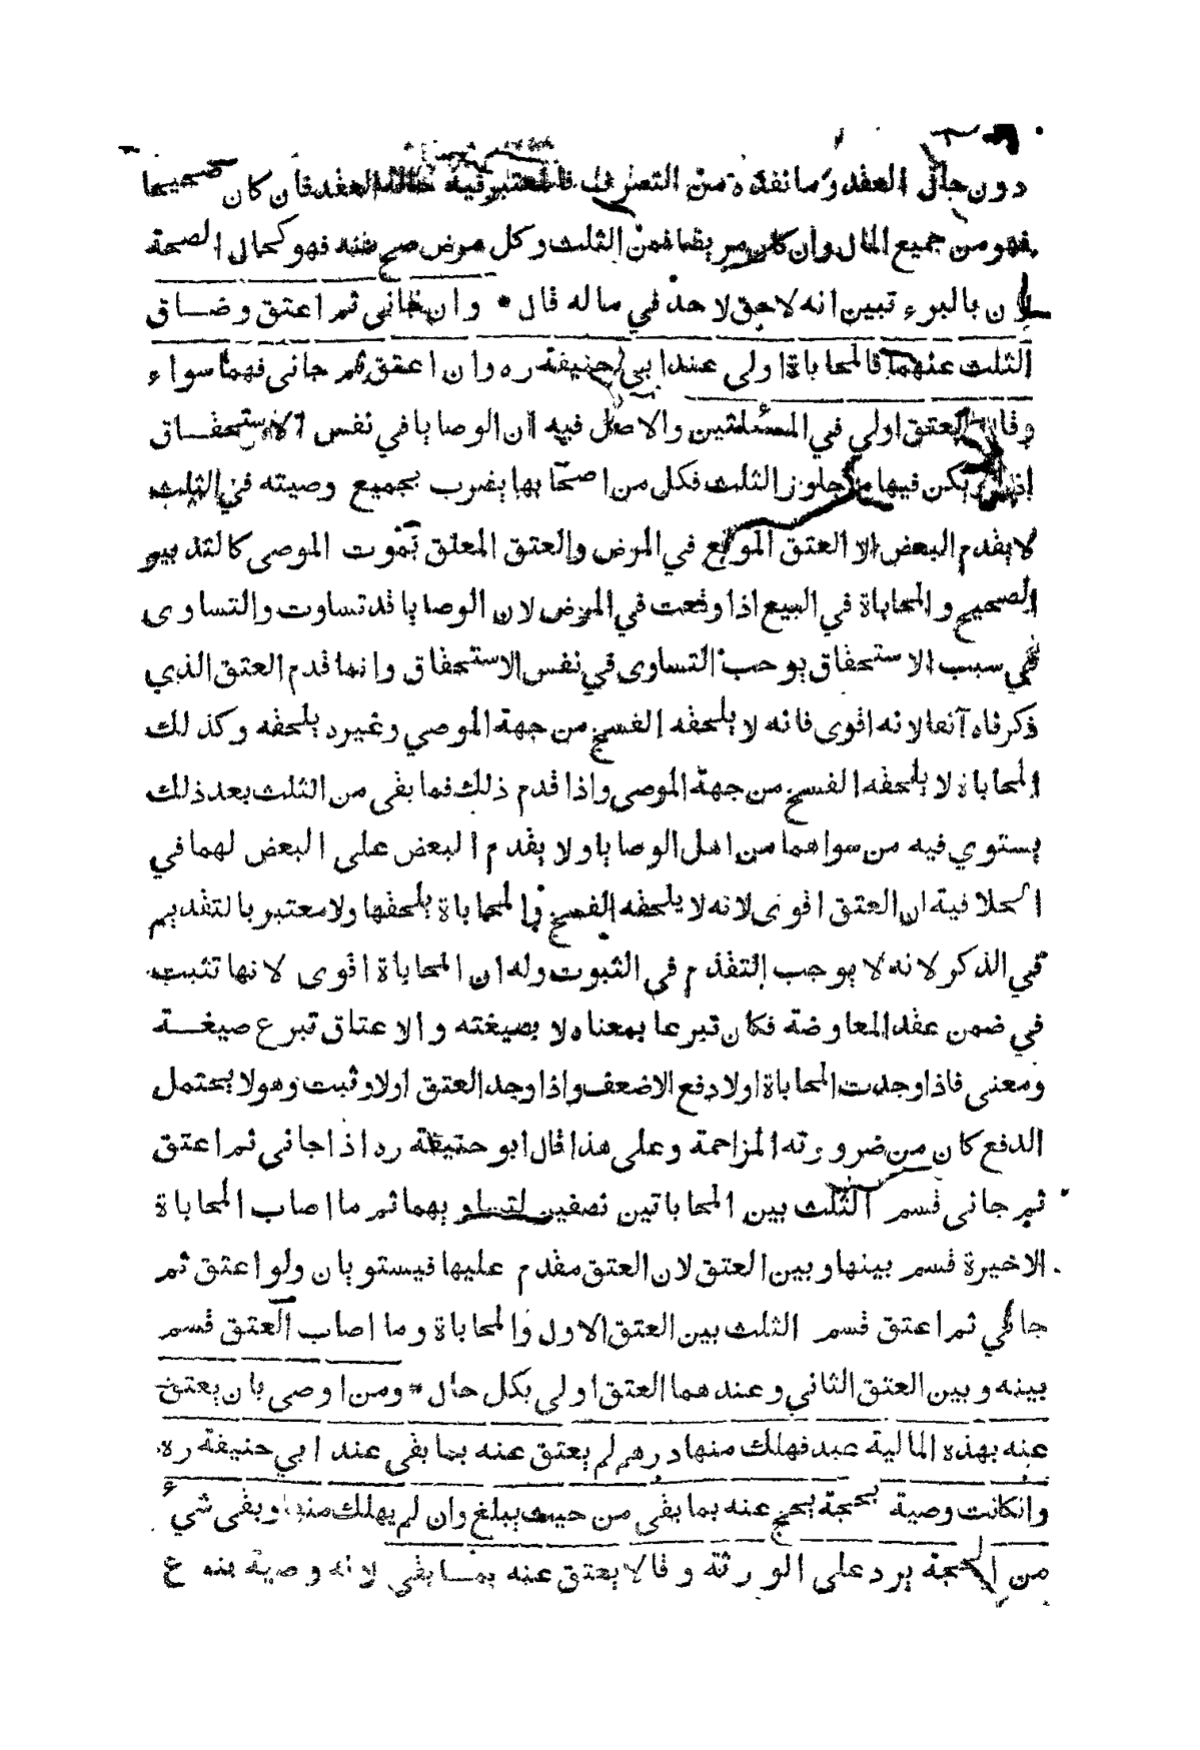 دون حال العقد وما نفذه من التصرف فالمعتبر فيه حالة العقد فان كان صحيحا
فهو من جميع المال وان كان مريضا فمن الثلث وكل مرض صح منه فهو كحال الصحة
لان بالبرء تبين انه لا حق لاحد في ماله قال * وان حابى ثم اعتق وضاق
الثلث عنهما فالمحاباة اولى عند ابي حنيفة ره وان اعتق ثم حابى فهما سواء
وقالا العتق اولى في المسئلتين والاصل فيه ان الوصايا في نفس الاستحقاق
اذا لم يكن فيها ما جاوز الثلث فكل من اصحابها يضرب بجميع وصيته في الثلث
لا يقدم البعض الا العتق الموقع في المرض والعتق المعلق بموت الموصى كالتدبير
الصحيح والمحاباة في البيع اذا وقعت في المرض لان الوصايا قد تساوت والتساوى
في سبب الاستحقاق يوجب التساوى في نفس الاستحقاق وانما قدم العتق الذي
ذكرناه آنفا لانه اقوى فانه لا يلحقه الفسخ من جهة الموصي وغيره يلحقه وكذلك
المحاباة لا يلحقه الفسخ من جهة الموصى واذا قدم ذلك فما بقى من الثلث بعد ذلك
يستوي فيه من سواهما من اهل الوصايا ولا يقدم البعض على البعض لهما في
الخلافية ان العتق اقوى لانه لا يلحقه الفسخ والمحاباة يلحقها ولا معتبر بالتقديم
في الذكر لانه لا يوجب التقدم في الثبوت وله ان المحاباة اقوى لانها تثبت
في ضمن عقد المعاوضة فكان تبرعا بمعناه لا بصيغته والاعتاق تبرع صيغة
ومعنى فاذا وجدت المحاباة اولا دفع الاضعف واذا وجد العتق اولا وثبت وهو لا يحتمل
الدفع كان من ضرورته المزاحمة وعلى هذا قال ابو حنيفة ره اذا حابى ثم اعتق
ثم حابى قسم الثلث بين المحاباتين نصفين لتساويهما ثم ما اصاب المحاباة
الاخيرة قسم بينها وبين العتق لان العتق مقدم عليها فيستويان ولو اعتق ثم
حابى ثم اعتق قسم الثلث بين العتق الاول والمحاباة وما اصاب العتق قسم
بينه وبين العتق الثاني وعندهما العتق اولى بكل حال * ومن اوصى بان يعتق
عنه بهذه المالية عبد فهلك منها درهم لم يعتق عنه بما بقى عند ابي حنيفة ره
وانكانت وصية بحجة يحج عنه بما بقى من حيث يبلغ وان لم يهلك منها وبقى شيء
من الحجة يرد على الورثة وقالا يعتق عنه بما بقى لانه وصية بنوع